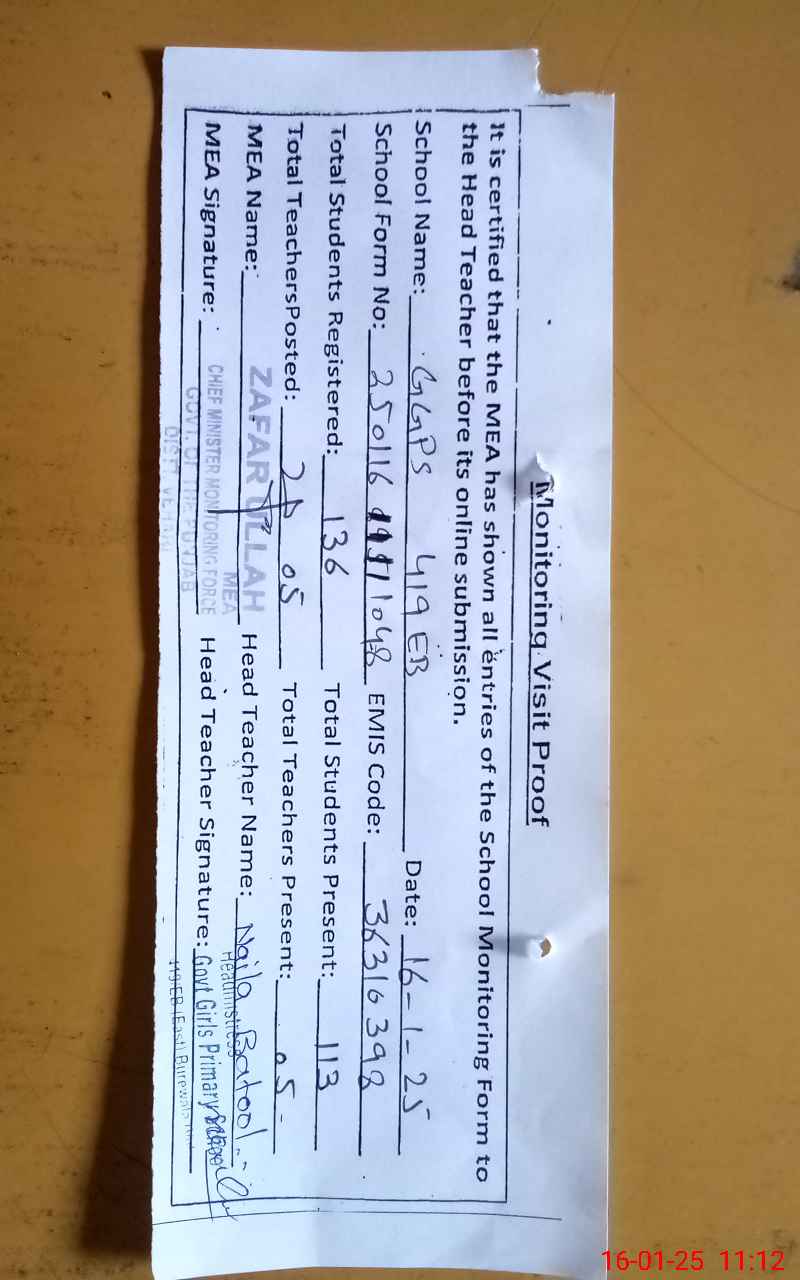 Monitoring Visit Proof
It is certified that the MEA has shown all entries of the School Monitoring Form to
the Head Teacher before its online submission.
School Name: GGPS 419 EB Date: 16-1-25
School Form No: 250116 1048 EMIS Code: 36316398
Total Students Registered: 136 Total Students Present: 113
Total TeachersPosted: 05 Total Teachers Present: 05
MEA Name: ZAFAR ULLAH Head Teacher Name: Naila Batool
MEA
Headmistress
MEA Signature: CHIEF MINISTER MONITORING FORCE Head Teacher Signature: Govt Girls Primary School
GOVT. OF THE PUNJAB
419/EB (East) Burewala
16-01-25 11:12